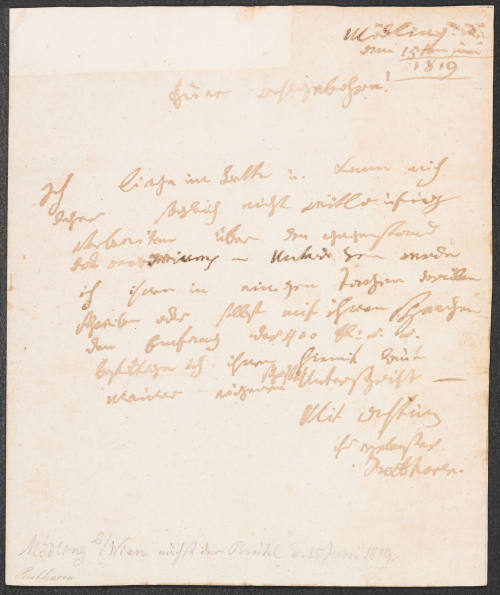 Mödling
den 15ten juni
1819
Euer wohlgebohren!
Ich liege im Bette u. kann mich
daher sogleich nicht
über den gegenstand
des oratoriums
ich ihnen in einigen Tagen darüber
schreiben oder selbst mit ihnen sprechen
den Empfang der 400 fl. w. w.
bestätige ich ihnen hiemit laut
meiner eigenen Unterschrift —
Mit achtung
ihr ergebenster
Beethoven.
Mödling b/Wien nächst der Brühl d. 15 Juni 1819.
Beethoven